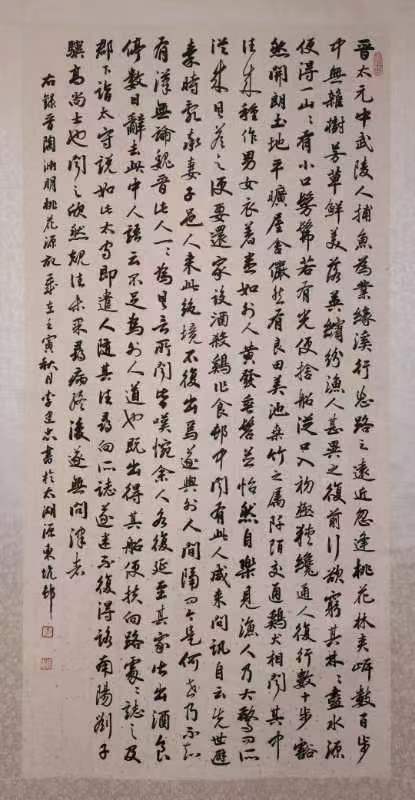 晋太元中武陵人捕魚為業緣溪行忘路之遠近忽逢桃花林夾岸數百步
中無雜樹芳草鮮美落英繽紛漁人甚異之復前行欲窮其林々盡水源
便得一山々有小口髣髴若有光便捨船從口入初極狹纔通人復行數十步豁
然開朗土地平曠屋舍儼然有良田美池桑竹之屬阡陌交通鷄犬相聞其中
往来種作男女衣着悉如外人黄發垂髫並怡然自樂見漁人乃大驚問所
從来具答之便要還家設酒殺鷄作食邨中聞有此人咸来問訊自云先世避
秦時亂率妻子邑人来此絶境不復出焉遂與外人間隔問今是何世乃不知
有漢無論魏晋此人一々為具言所聞皆嘆惋余人各復延至其家皆出酒食
停數日辭去此中人語云不足為外人道也既出得其船便扶向路處々誌之及
郡下詣太守説如此太守即遣人隨其往尋向所誌遂迷不復得路南陽劉子
驥高尚士也聞之欣然規往未果尋病終後遂無問津者
右錄晋陶淵明桃花源記歲在壬寅秋月書於太湖源東坑邨